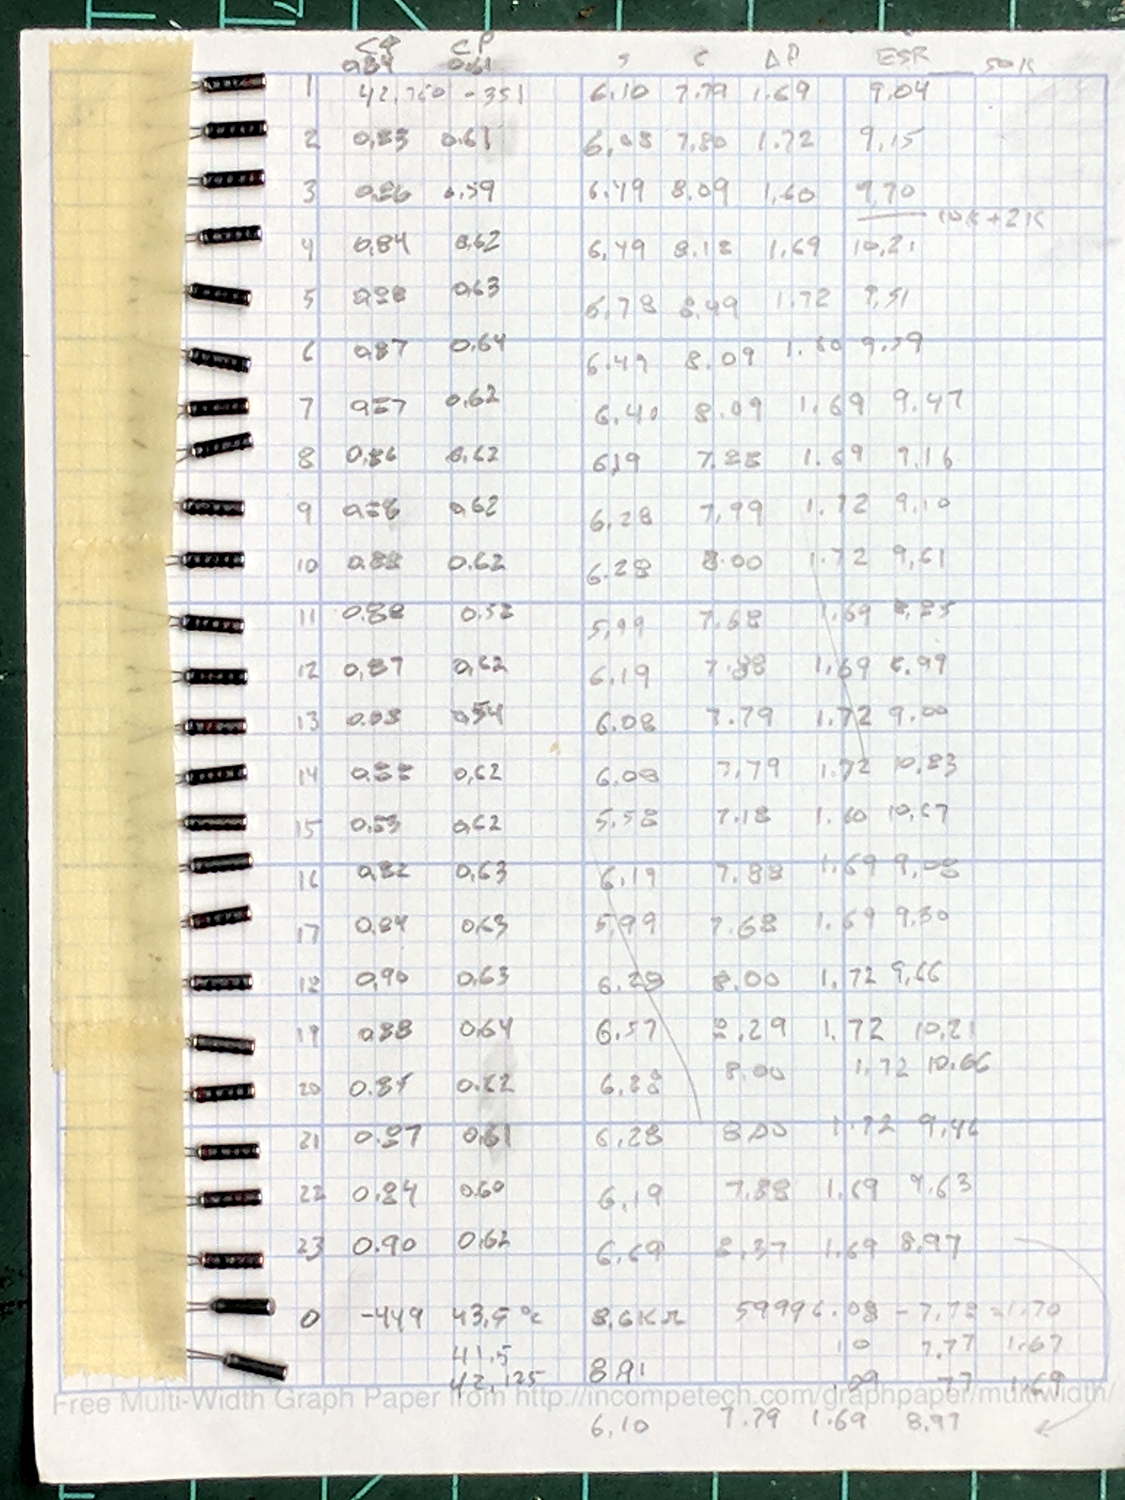 CP
0.84 0.61 S C ΔP ESR 50K
1 42.760 -351 6.10 7.79 1.69 9.04
2 0.83 0.61 7.80 1.72 9.15
3 0.59 6.49 8.09 1.60 9.70
10K+2K
4 0.84 0.62 6.49 8.18 1.69 10.21
5 0.63 6.78 8.49 1.72 9.51
6 0.87 0.64 6.49 8.09 1.60
7 0.87 0.62 6.40 8.09 1.69 9.47
8 0.86 0.62 6.19 7.88 1.69 9.16
9 0.62 6.28 7.99 1.72 9.10
10 0.88 0.62 6.28 8.00 1.72 9.61
11 0.88 0.58 5.99 7.68 1.69
12 0.87 0.62 6.19 7.88 1.69 8.99
13 0.54 6.08 7.79 1.72 9.00
14 0.88 0.62 6.08 7.79 1.72 10.83
15 0.62 5.58 7.18 1.60 10.67
16 0.82 0.63 6.19 7.88 1.69 9.08
17 0.84 0.63 5.99 7.68 1.69 9.30
18 0.90 0.63 6.28 8.00 1.72 9.66
19 0.88 0.64 6.57 8.29 1.72 10.21
20 0.62 6.28 8.00 1.72 10.66
21 0.87 0.61 6.28 8.00 1.72 9.46
22 0.84 0.60 6.19 7.88 1.69 9.63
23 0.90 0.62 6.69 8.37 1.69 8.97
0 -449 43.5°C 8.6KΩ 5999 6.08 - 7.78 = 1.70
41.5 10 7.77 1.67
42.125 8.91 .09 77 1.69
Free Multi-Width Graph Paper from http://incompetech.com/graphpaper/multiwidth/
6.10 7.79 1.69 8.97